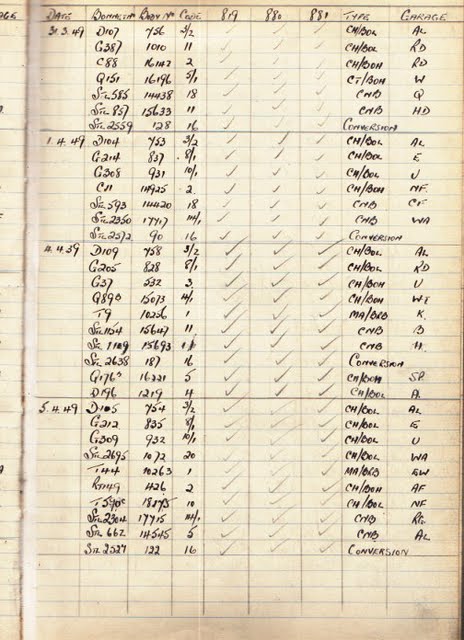 AGE DATE BONNET Nº BODY Nº CODE 819 880 881 TYPE GARAGE
31.3.49 D107 756 3/2 CH/BOL AL
G387 1010 11 CH/BOL RD
C88 16142 2 CH/BOH RD
Q151 16196 5/1 CT/BOH W
STL 585 14438 18 CNB Q
STL 857 15633 11 CNB HD
STL 2559 128 16 CONVERSION
1.4.49 D104 753 3/2 CH/BOL AL
G214 837 8/1 CH/BOL E
G308 931 10/1 CH/BOL U
C11 2 CH/BOH NF
STL 593 14420 18 CNB CF
STL 2350 17717 14/1 CNB WA
STL 2572 90 16 CONVERSION
4.4.39 D109 758 3/2 CH/BOL AL
G205 828 8/1 CH/BOL RD
G37 532 3 CH/BOL U
Q89 15073 4/1 CH/BOH WT
T9 10256 1 MA/BRB K
STL 1154 15647 11 CNB B
STL 1109 15693 11 CNB H
STL 2638 187 16 CONVERSION
Q176 16221 5 CH/BOH SP
D196 1219 4 CH/BOL A
5.4.49 D105 754 3/2 CH/BOL AL
G212 835 8/1 CH/BOL E
G309 932 10/1 CH/BOL U
STL 2695 1072 20 CH/BOL WA
T44 10263 1 MA/BRB EW
426 2 CH/BOH AF
10 CH/BOL NF
STL 2304 17715 14/1 CNB
STL 662 14545 5 CNB AL
STL 2527 132 16 CONVERSION